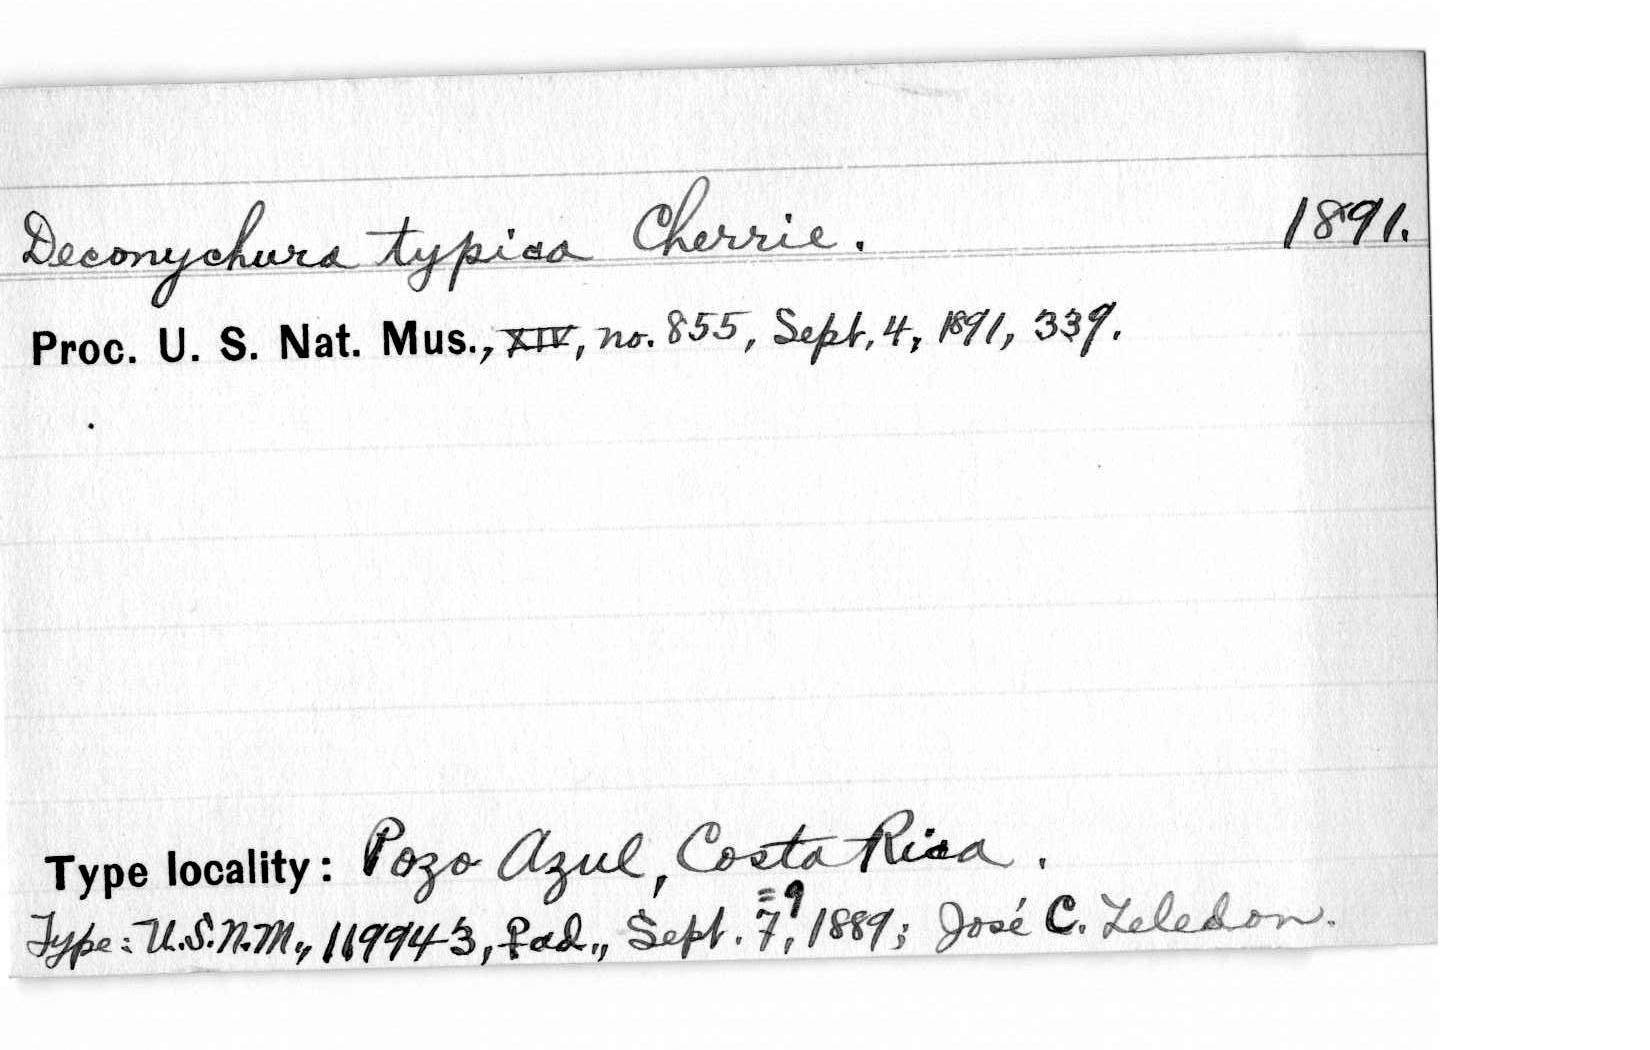 Deconychura typica Cherrie. 1891.
Proc. U. S. Nat. Mus., XIV, no. 855, Sept. 4, 1891, 339.
Type locality: Pozo Azul, Costa Rica.
=9
Type: U.S.N.M., 119943, ♀ ad., Sept. 7, 1889; José C. Zeledon.